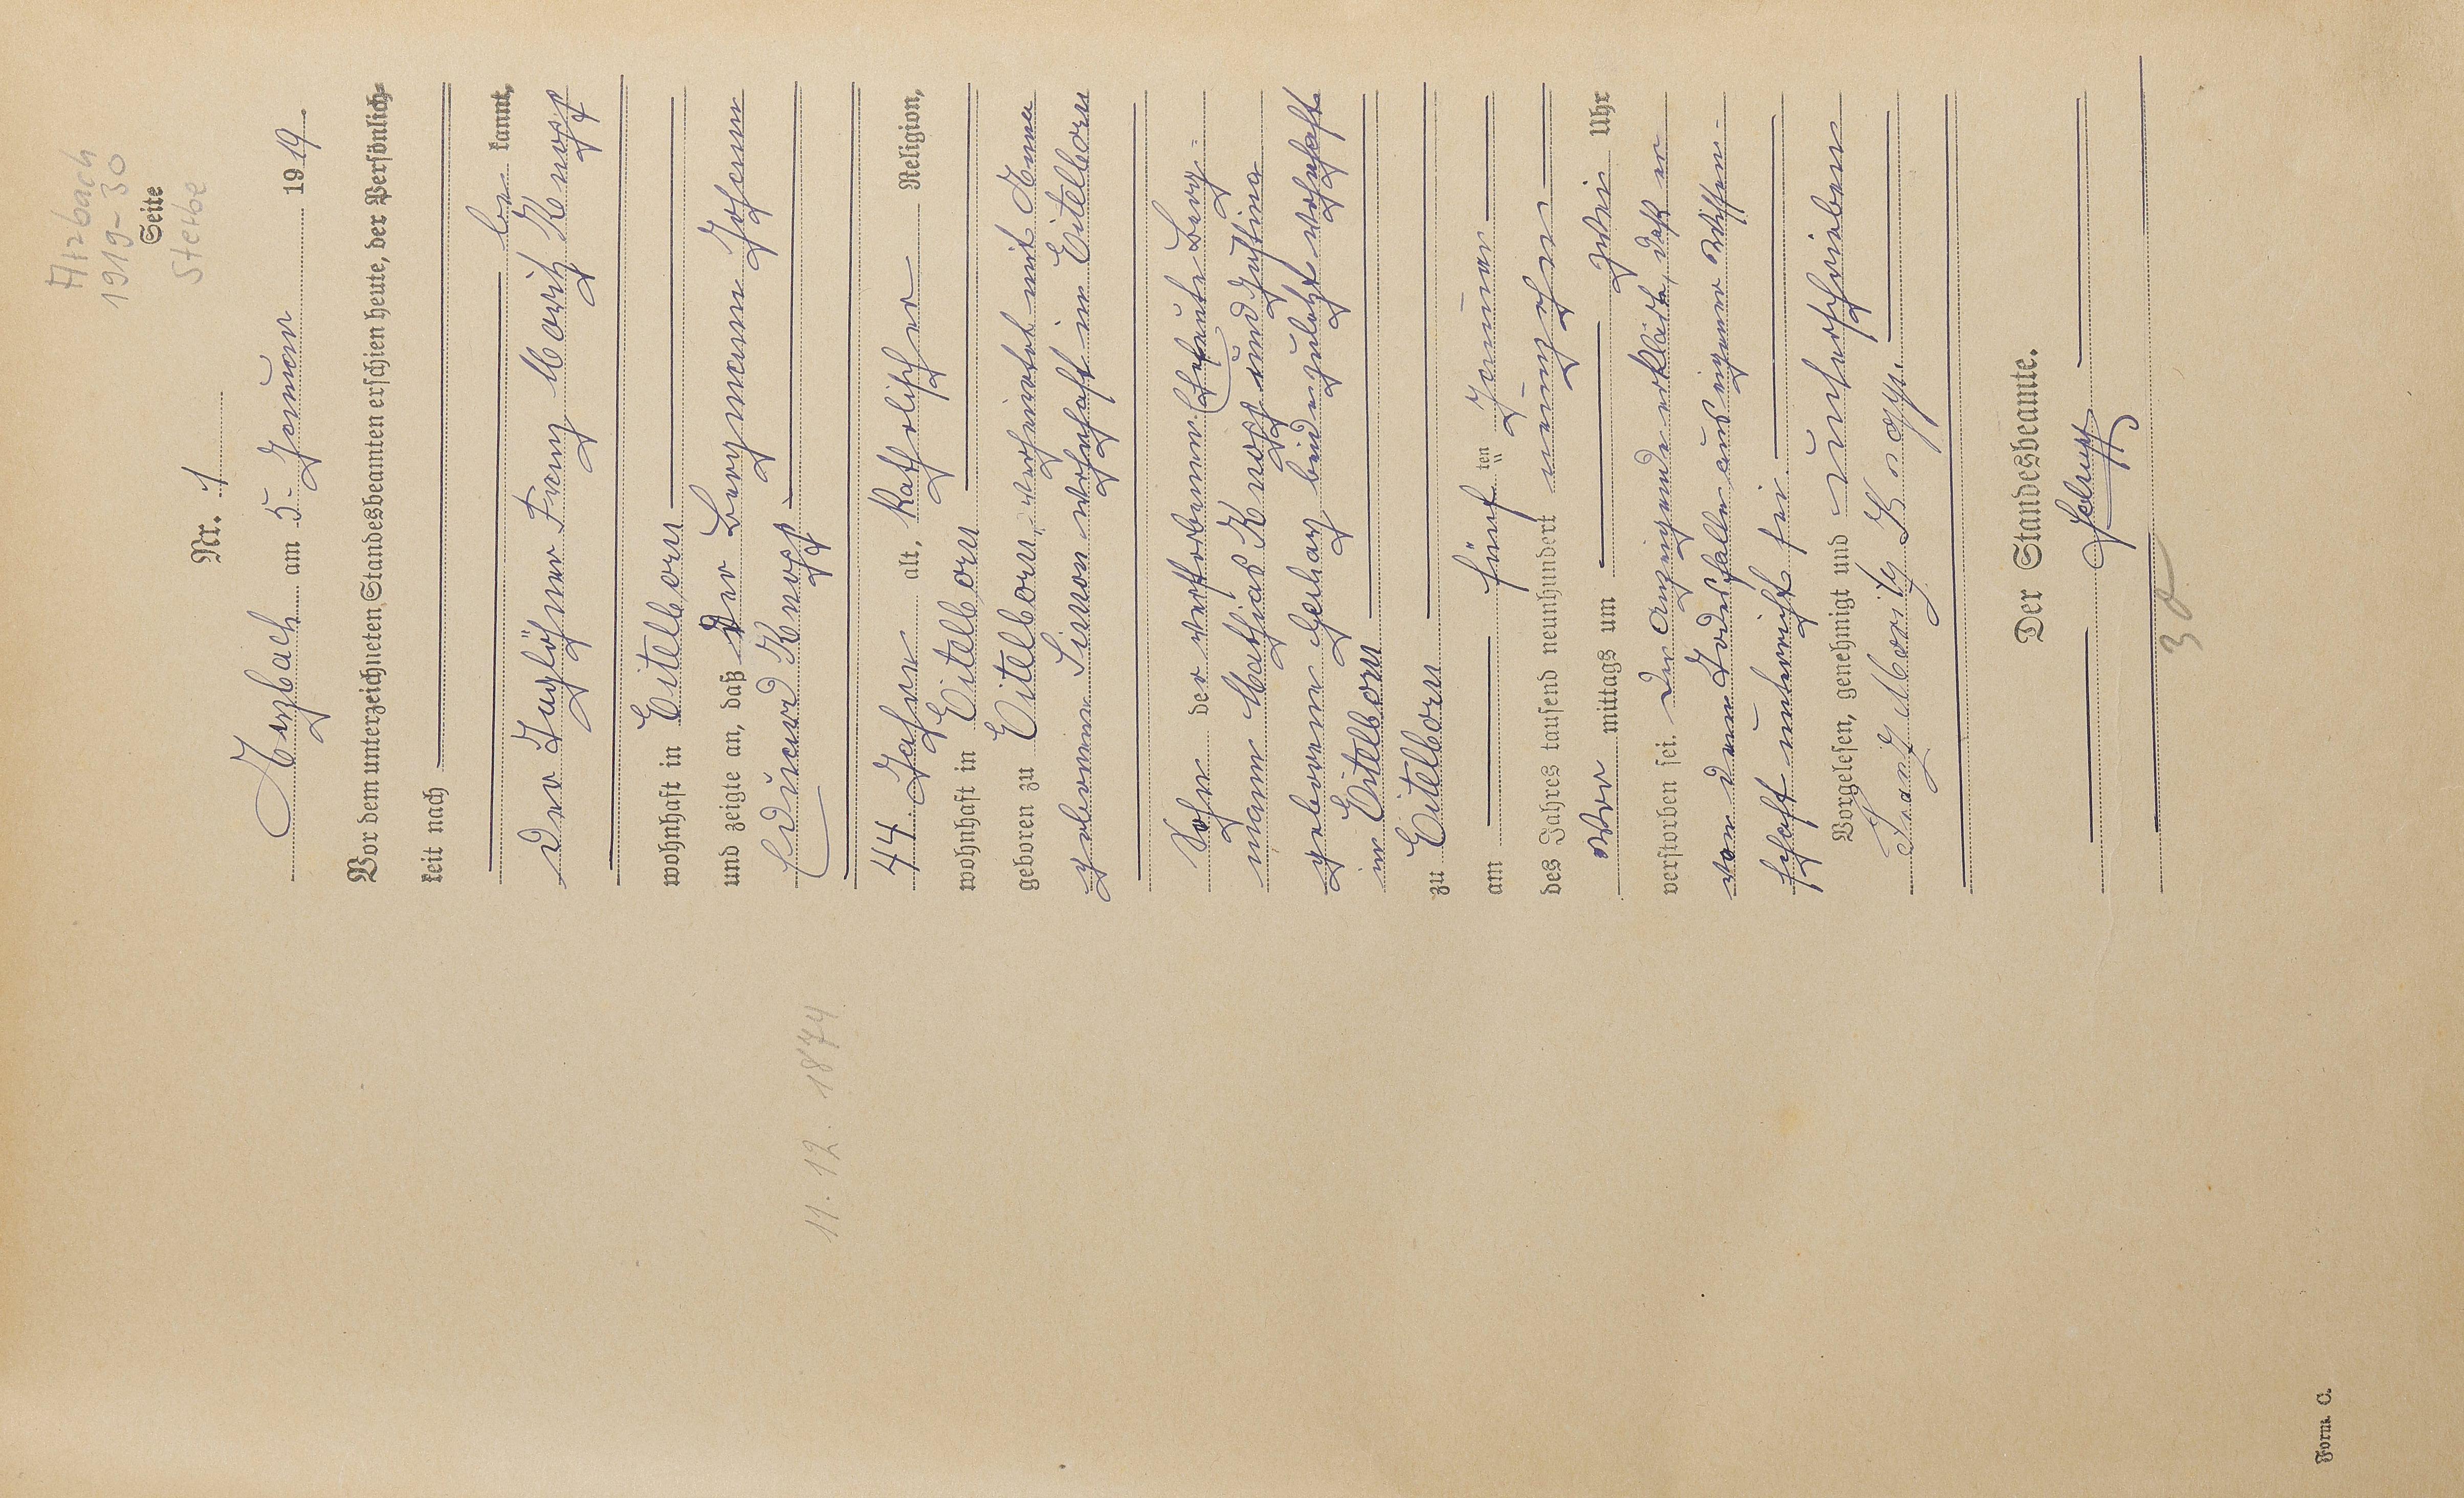 Arzbach
1919-30
Seite
Sterbe
Nr. 1
Arzbach am 5. Januar 1919.
Vor dem unterzeichneten Standesbeamten erschien heute, der Persönlich-
keit nach
be kannt,
der Taglöhner Franz Moritz Knopp
wohnhaft in Eitelborn
und zeigte an, daß der Bergmann Johann
Eduard Knopp
11. 12. 1874
44 Jahre alt, katholischer Religion,
wohnhaft in Eitelborn
geboren zu Eitelborn, verheiratet mit Anna
geborenen Simon wohnhaft in Eitelborn
Sohn der verstorbenen Eheleute Berg-
mann Mathias Knopp und Justina
geborene Gerharz beide zuletzt wohnhaft
in Eitelborn
zu Eitelborn
am fünf ten Januar
des Jahres tausend neunhundert neunzehn
Vor mittags um zwei Uhr
verstorben sei. Der Anzeigende erklärte, daß er
von dem Todesfalle aus eigener Wissen-
schaft unterrichtet sei.
Vorgelesen, genehmigt und unterschrieben
Franz Moritz Knopp.
Der Standesbeamte.
30
Form. C.